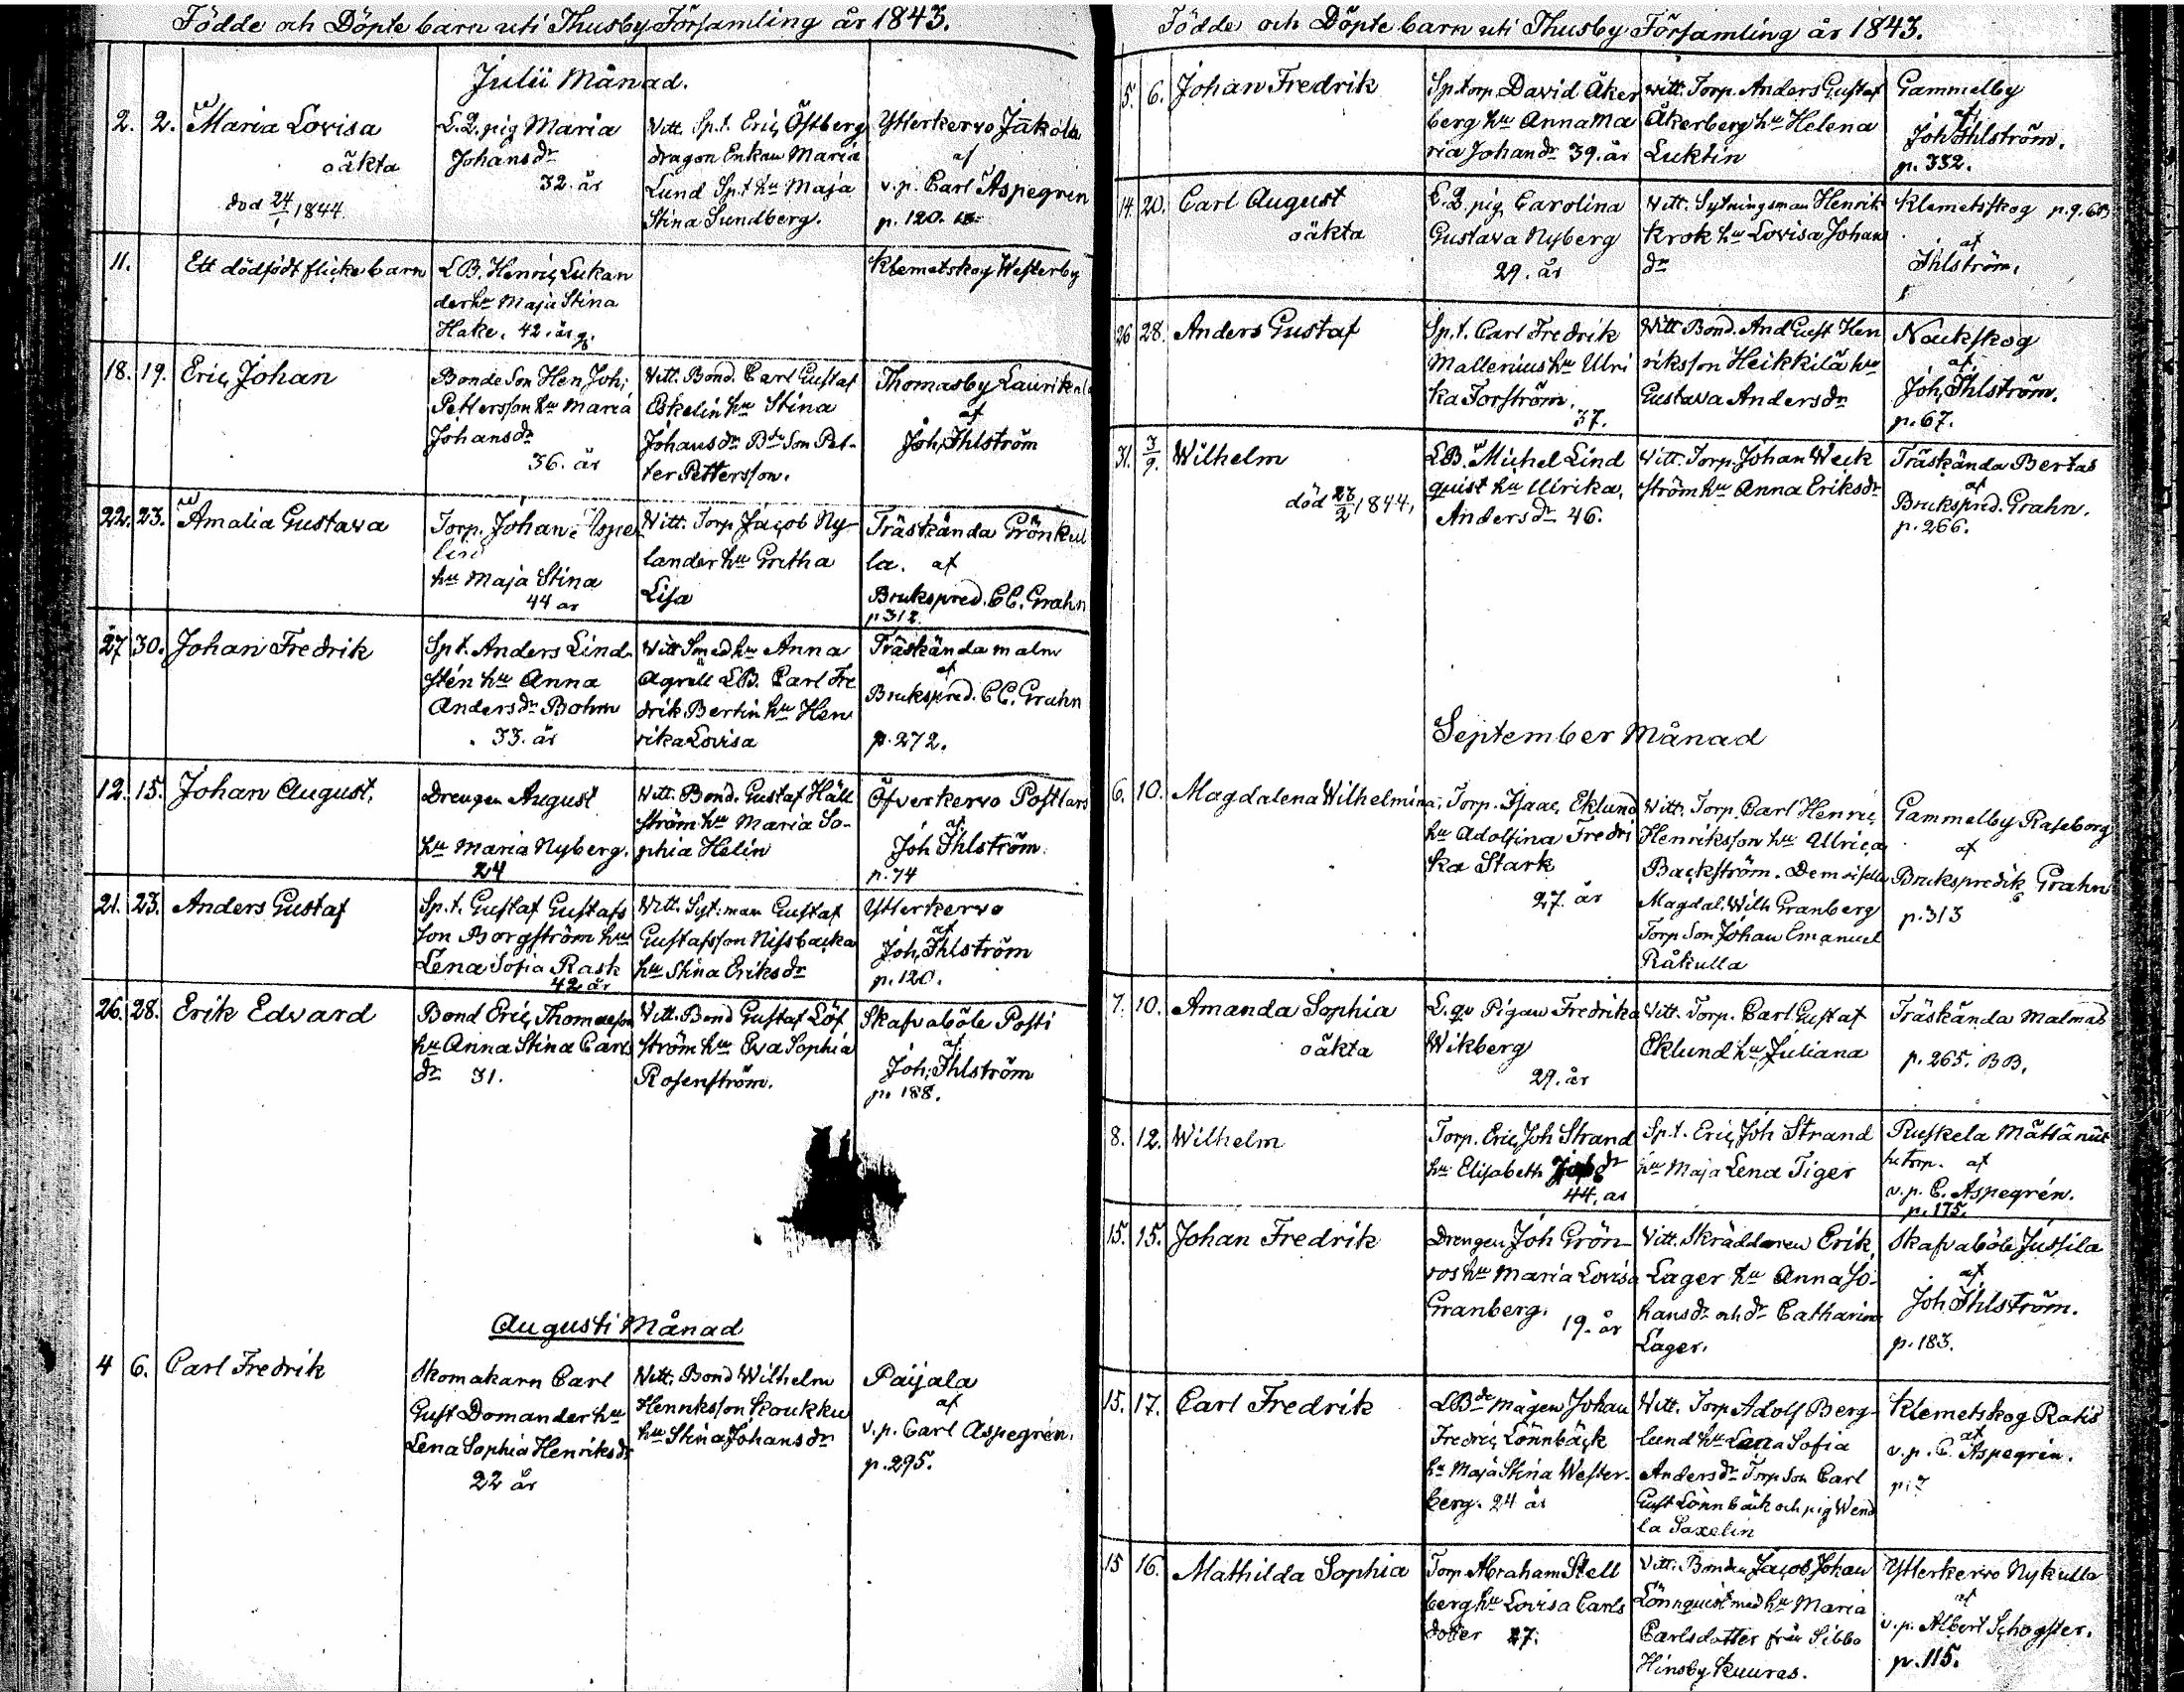 Födde och Döpte barn uti Thusby Församling år 1843.
Julii Månad.
2. 2. Maria Lovisa
oäkta
död 24/1 1844.
L.Q. pig Maria
Johansdr
32. år
Vitt. Sp.t. Eric Östberg
dragon Enkan Maria
Lund Sp.t hu Maja
Stina Sundberg.
Ytterkervo Jakola
af
v.p. Carl Aspegren
p. 120.
11. Ett dödfödt flickebarn
L.B. Henric Lukan
der hu Maja Stina
Hake. 42. år
Klemetskog Westerby
18. 19. Eric Johan
Bonde Son Hen Joh:
Pettersson hu Maria
Johansdr
36. år
Vitt. Bond. Carl Gustaf
Eskelin hu Stina
Johansdr Bde Son Pet-
ter Pettersson.
Thomasby Laurikala
af
Joh. Ihlström
22. 23. Amalia Gustava
Torp. Johan Aspe
lin
hu Maja Stina
44 år
Vitt. Torp. Jacob Ny-
lander hu Gretha
Lisa
Träskända Grönkul
la. af
Brukspred. C C. Grahn
p 312.
27 30. Johan Fredrik
Sp.t. Anders Lind
stén hu Anna
Andersdr Bohm
33. år
Vitt Smed hu Anna
Agrell L.B. Carl Fre
drik Bertin hu Hen
rika Lovisa
Träskända malm
af
Brukspred. C C. Grahn
p. 272.
12. 15. Johan August.
Drengen August
hu Maria Nyberg.
24
Vitt. Bond. Gustaf Häll
ström hu Maria So-
phia Helin
Öfverkervo Postlars
af
Joh Ihlström.
p. 74
21. 23. Anders Gustaf
Sp.t. Gustaf Gustafs
son Borgström hu
Lena Sofia Rask
42 år
Vitt. Syt. man Gustaf
Gustafsson Nissbacka
hu Stina Eriksdr
Ytterkervo
af
Joh. Ihlström
p. 120.
26. 28. Erik Edvard
Bond Eric Thomasson
hu Anna Stina Carls
dr 31.
Vitt. Bond Gustaf Löf
ström hu Eva Sophia
Rosenström.
Skafvaböle Posti
af
Joh. Ihlström
p. 188.
Augusti Månad
4 6. Carl Fredrik
Skomakarn Carl
Gust Domander hu
Lena Sophia Henriksdr
22 år
Vitt. Bond Wilhelm
Henriksson Skoukku
hu Stina Johansdr
Paijala
af
v.p. Carl Aspegrén.
p. 295.
Födde och Döpte barn uti Thusby Församling år 1843.
5. 6. Johan Fredrik
Sp.torp. David Åker
berg hu Anna Ma
ria Johandr 39. år
Witt. Torp. Anders Gustaf
Åkerberg hu Helena
Luktin
Gammelby
af
Joh Ihlström.
p. 332.
14. 20. Carl August
oäkta
L.Q. pig Carolina
Gustava Nyberg
29. år
Witt. Sytningsman Henrik
Krok hu Lovisa Johan
dr
Klemetskog
af
Ihlström.
26 28. Anders Gustaf
Sp.t. Carl Fredrik
Mallenius hu Ulri
ka Forström.
37.
Witt Bond. And Gust Hen
riksson Heikkilä hu
Gustava Andersdr
Nackskog
af
Joh. Ihlström.
p. 67.
31. 3/9. Wilhelm
död 23/2 1844,
L.B. Michel Lind
quist hu Ulrika,
Andersdr 46.
Witt. Torp. Johan Weck
ström hu Anna Eriksdr
Träskända Bertas
af
Brukspred. Grahn.
p. 266.
September Månad
6. 10. Magdalena Wilhelmina,
Torp. Isaac Eklund
hu Adolfina Fredri
ka Stark
27. år
Vitt. Torp. Carl Henric
Henriksson hu Ulrica
Backström. Demoiselle
Magdal. Wilh Granberg
Torp Son Johan Emanuel
Råkulla
Gammelby Raseborg
af
Brukspredik. Grahn
p. 313
7. 10. Amanda Sophia
oäkta
L. qv Pigan Fredrika
Wikberg
29. år
Vitt. Torp. Carl Gustaf
Eklund hu Juliana
Träskända Malmas
p. 265. BB.
8. 12. Wilhelm
Torp. Eric Joh Strand
hu Elisabeth Jobsdr
44. år
Sp.t. Eric Joh Strand
hu Maja Lena Tiger
Ruskela
torp. af
v.p. C. Aspegrén.
p. 175.
15. 15. Johan Fredrik
Drengen Joh Grön-
ros hu Maria Lovisa
Granberg.
19. år
Vitt. Skräddaren Erik
Lager hu Anna Jo-
hansdr och dr Catharina
Lager.
Skafvaböle Jussila
af
Joh Ihlström.
p. 183.
15. 17. Carl Fredrik
L Bde mågen Johan
Fredric Lönnbäck
hu Maja Stina Wester-
berg. 24 år
Vitt. Torp Adolf Berg-
lund hu Lena Sofia
Andersdr Torp Son Carl
Gust Lönnbäck och pig Wend
la Saxelin
Klemetskog Ratis
af
v.p. C. Aspegrén.
p. 7
15 16. Mathilda Sophia
Torp Abraham Stell
berg hu Lovisa Carls
dotter 27.
Vitt. Bonden Jacob Johan
Lönnquist med hu Maria
Carlsdotter från Sibbo
Hinsby Kuuras.
Ytterkervo Nykulla
af
v.p. Albert Schogster.
p. 115.